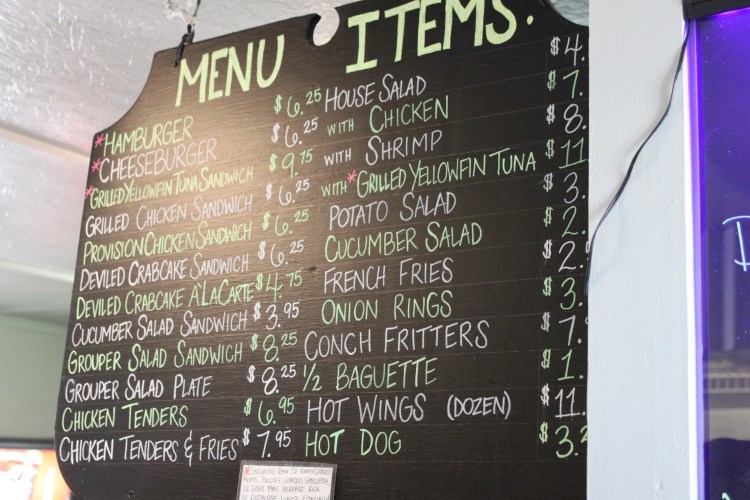 MENU ITEMS.
*HAMBURGER $6.25
*CHEESEBURGER $6.25
*GRILLED YELLOWFIN TUNA SANDWICH $9.75
GRILLED CHICKEN SANDWICH $6.25
PROVISION CHICKEN SANDWICH $6.25
DEVILED CRABCAKE SANDWICH $6.25
DEVILED CRABCAKE A'LA CARTE $4.75
CUCUMBER SALAD SANDWICH $3.95
GROUPER SALAD SANDWICH $8.25
GROUPER SALAD PLATE $8.25
CHICKEN TENDERS $6.95
CHICKEN TENDERS & FRIES $7.95
HOUSE SALAD $4.
WITH CHICKEN $7.
WITH SHRIMP $8.
WITH *GRILLED YELLOWFIN TUNA $11
POTATO SALAD $3.
CUCUMBER SALAD $2.
FRENCH FRIES $2.
ONION RINGS $3.
CONCH FRITTERS $7.
1/2 BAGUETTE $1.
HOT WINGS (DOZEN) $11.
HOT DOG $3.2